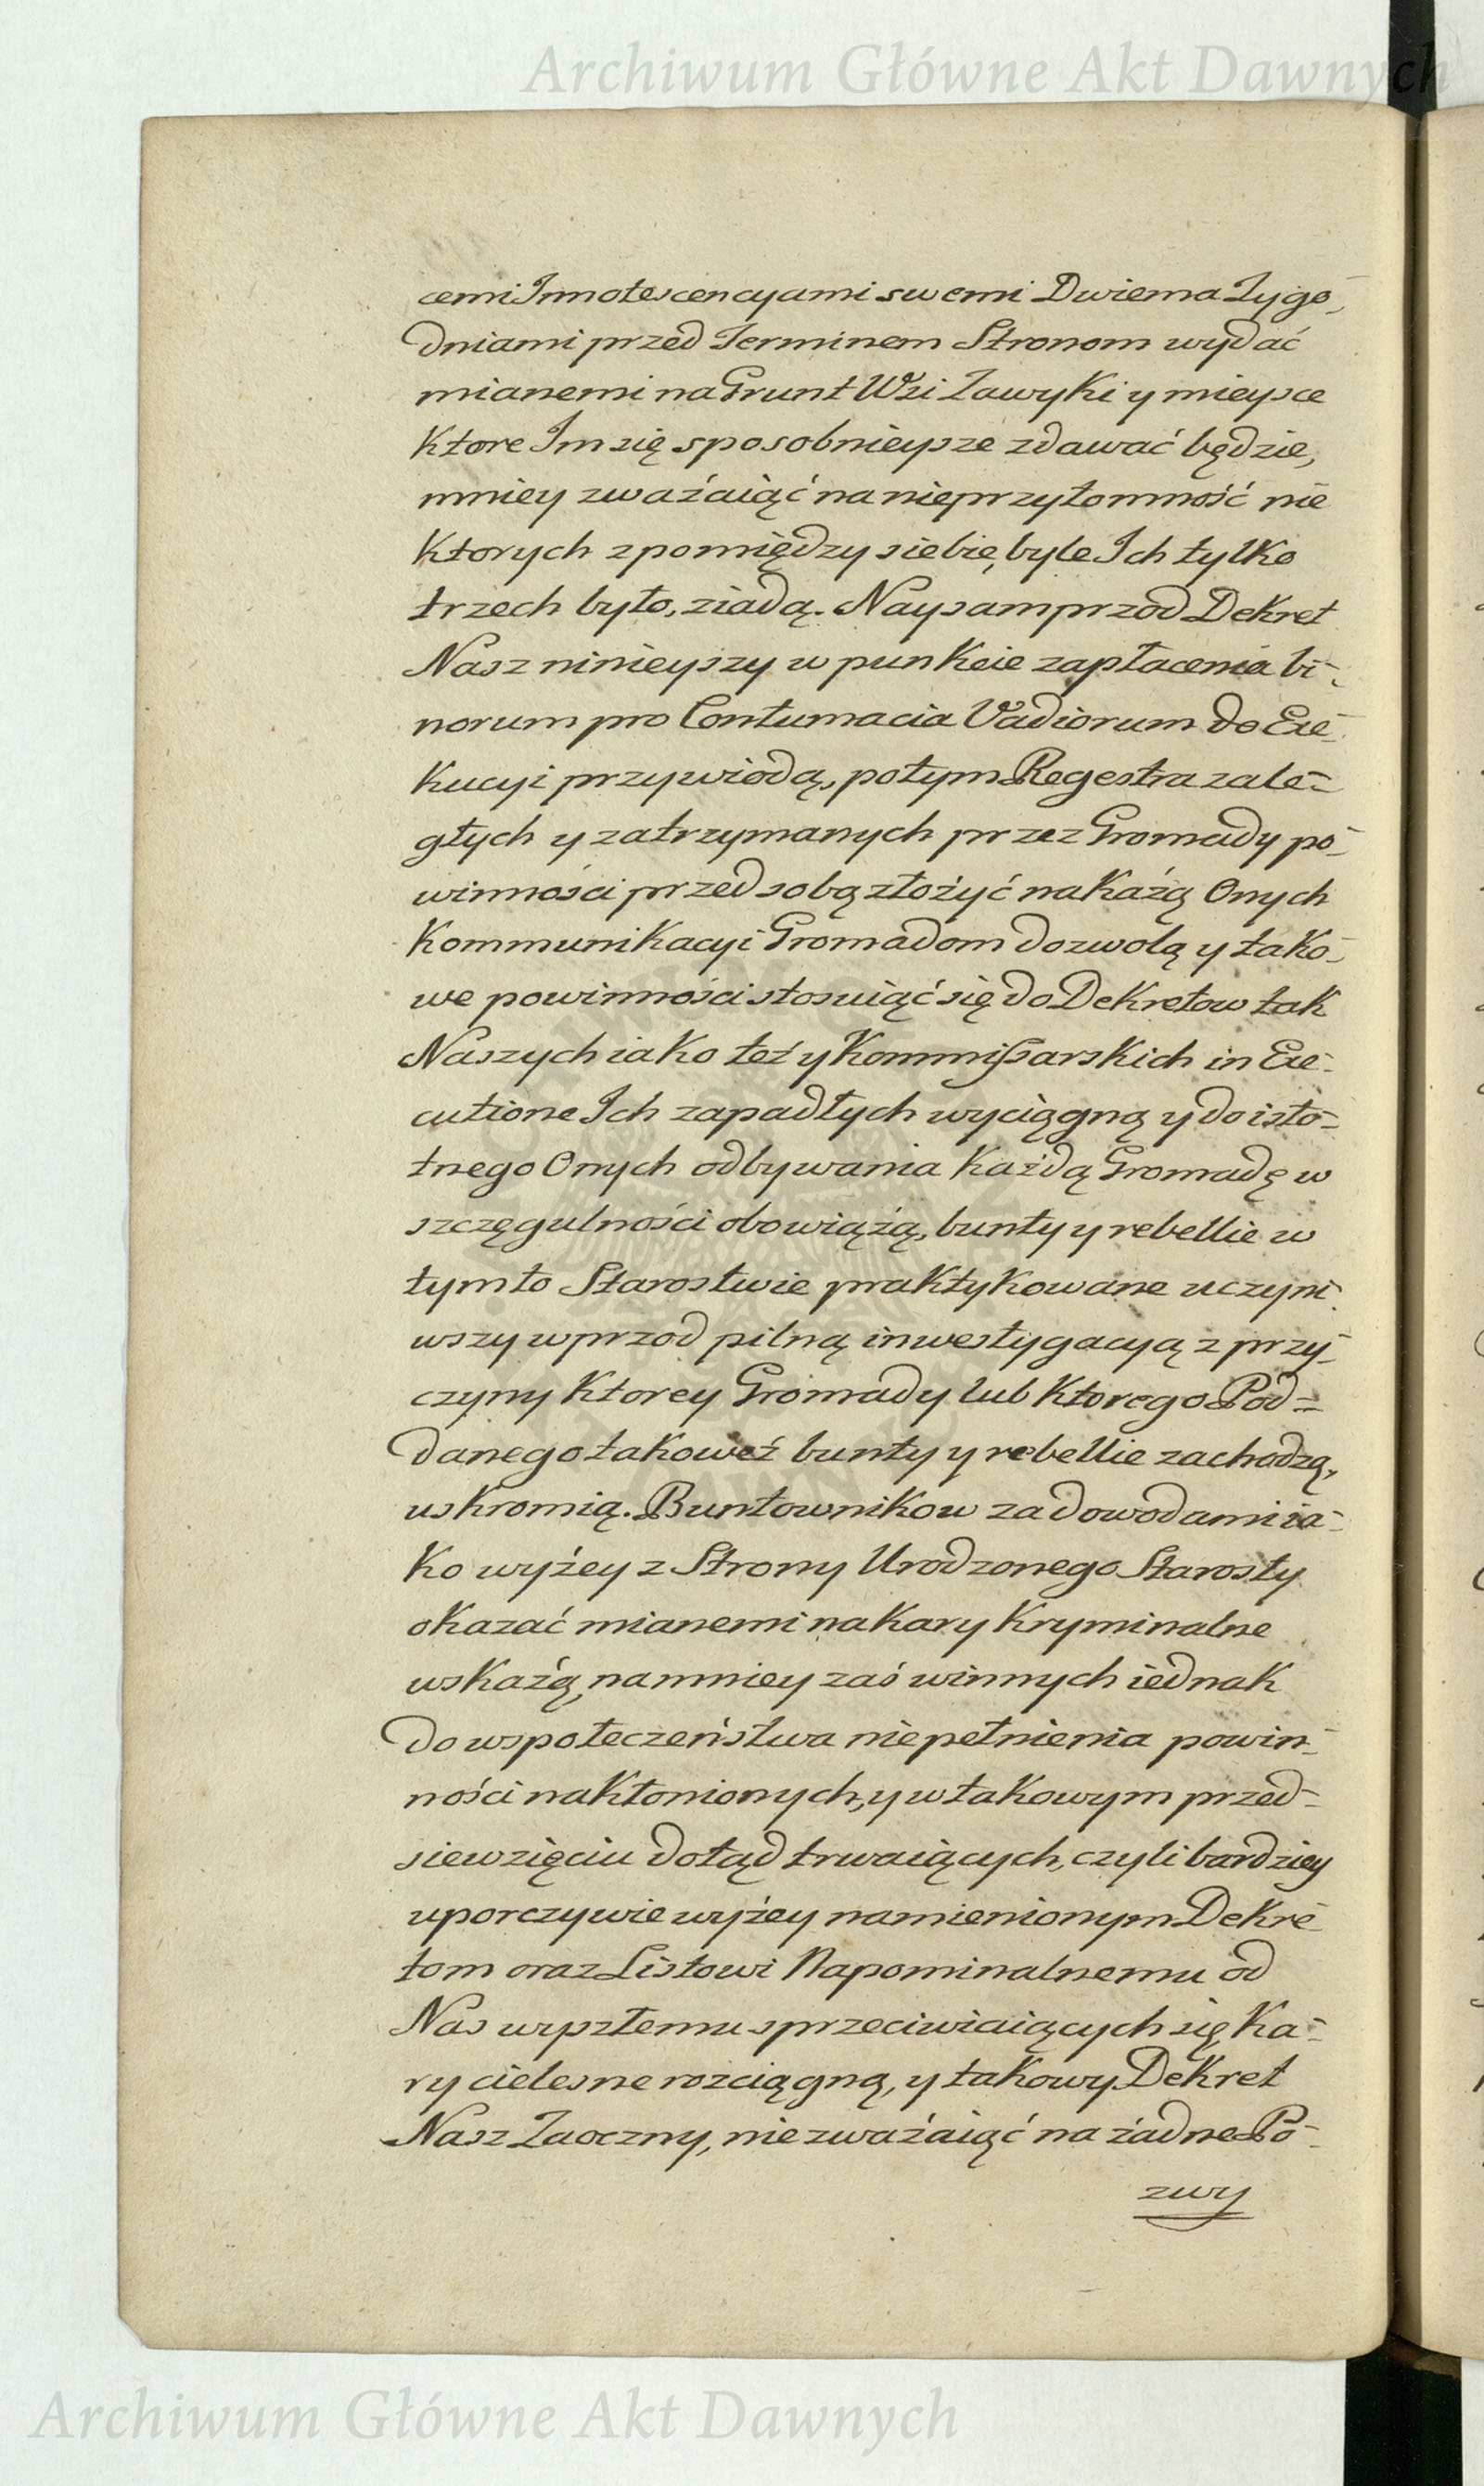 Archiwum Główne Akt Dawnych
cemi Innotescencyami swemi Dwiema Tygo-
dniami przed Terminem Stronom wydać
mianemi na Grunt Wsi Zawyki y mieysce
ktore Im się sposobnieysze zdawać będzie,
mniey zważaiąć na nieprzytomność nie
ktorych z pomiędzy siebie, byle Ich tylko
trzech było, ziadą. Naysamprzod Dekret
Nasz ninieyszy w punkcie zapłacenia bi-
norum pro Contumacia Vadiorum do Exe-
kucyi przywiodą, potym Regestra zale-
głych y zatrzymanych przez Gromady po-
winności przed sobą złożyć nakażą Onych
Kommunikacyi Gromadom dozwolą y tako-
we powinności stosuiąć się do Dekretow tak
Naszych iako też y Kommissarskich in Exe-
cutione Ich zapadłych wyciągną y do isto-
tnego Onych odbywania każdą Gromadę w
szczęgulności obowiążą, bunty y rebellie w
tymto Starostwie praktykowane uczyni-
wszy wprzod pilną inwestygacyą z przy-
czyny ktorey Gromady lub ktorego Pod-
danego takoweź bunty y rebellie zachodzą,
uskromią. Buntownikow za dowodami ia-
ko wyżey z Strony Urodzonego Starosty
okazać mianemi na kary kryminalne
wskażą, namniey zaś winnych iednak
do wspołeczeństwa niepełnienia powin-
ności nakłonionych, y w takowym przed-
siewzięciu dotąd trwaiących, czyli bardziey
uporczywie wyżey namienionym Dekre-
tom oraz Listowi Napominalnemu od
Nas wyszłemu sprzeciwiaiących się ka-
ry cielesne rozciągną, y takowy Dekret
Nasz Zaoczny, nie zważaiąć na żadne Po-
zwy
Archiwum Główne Akt Dawnych